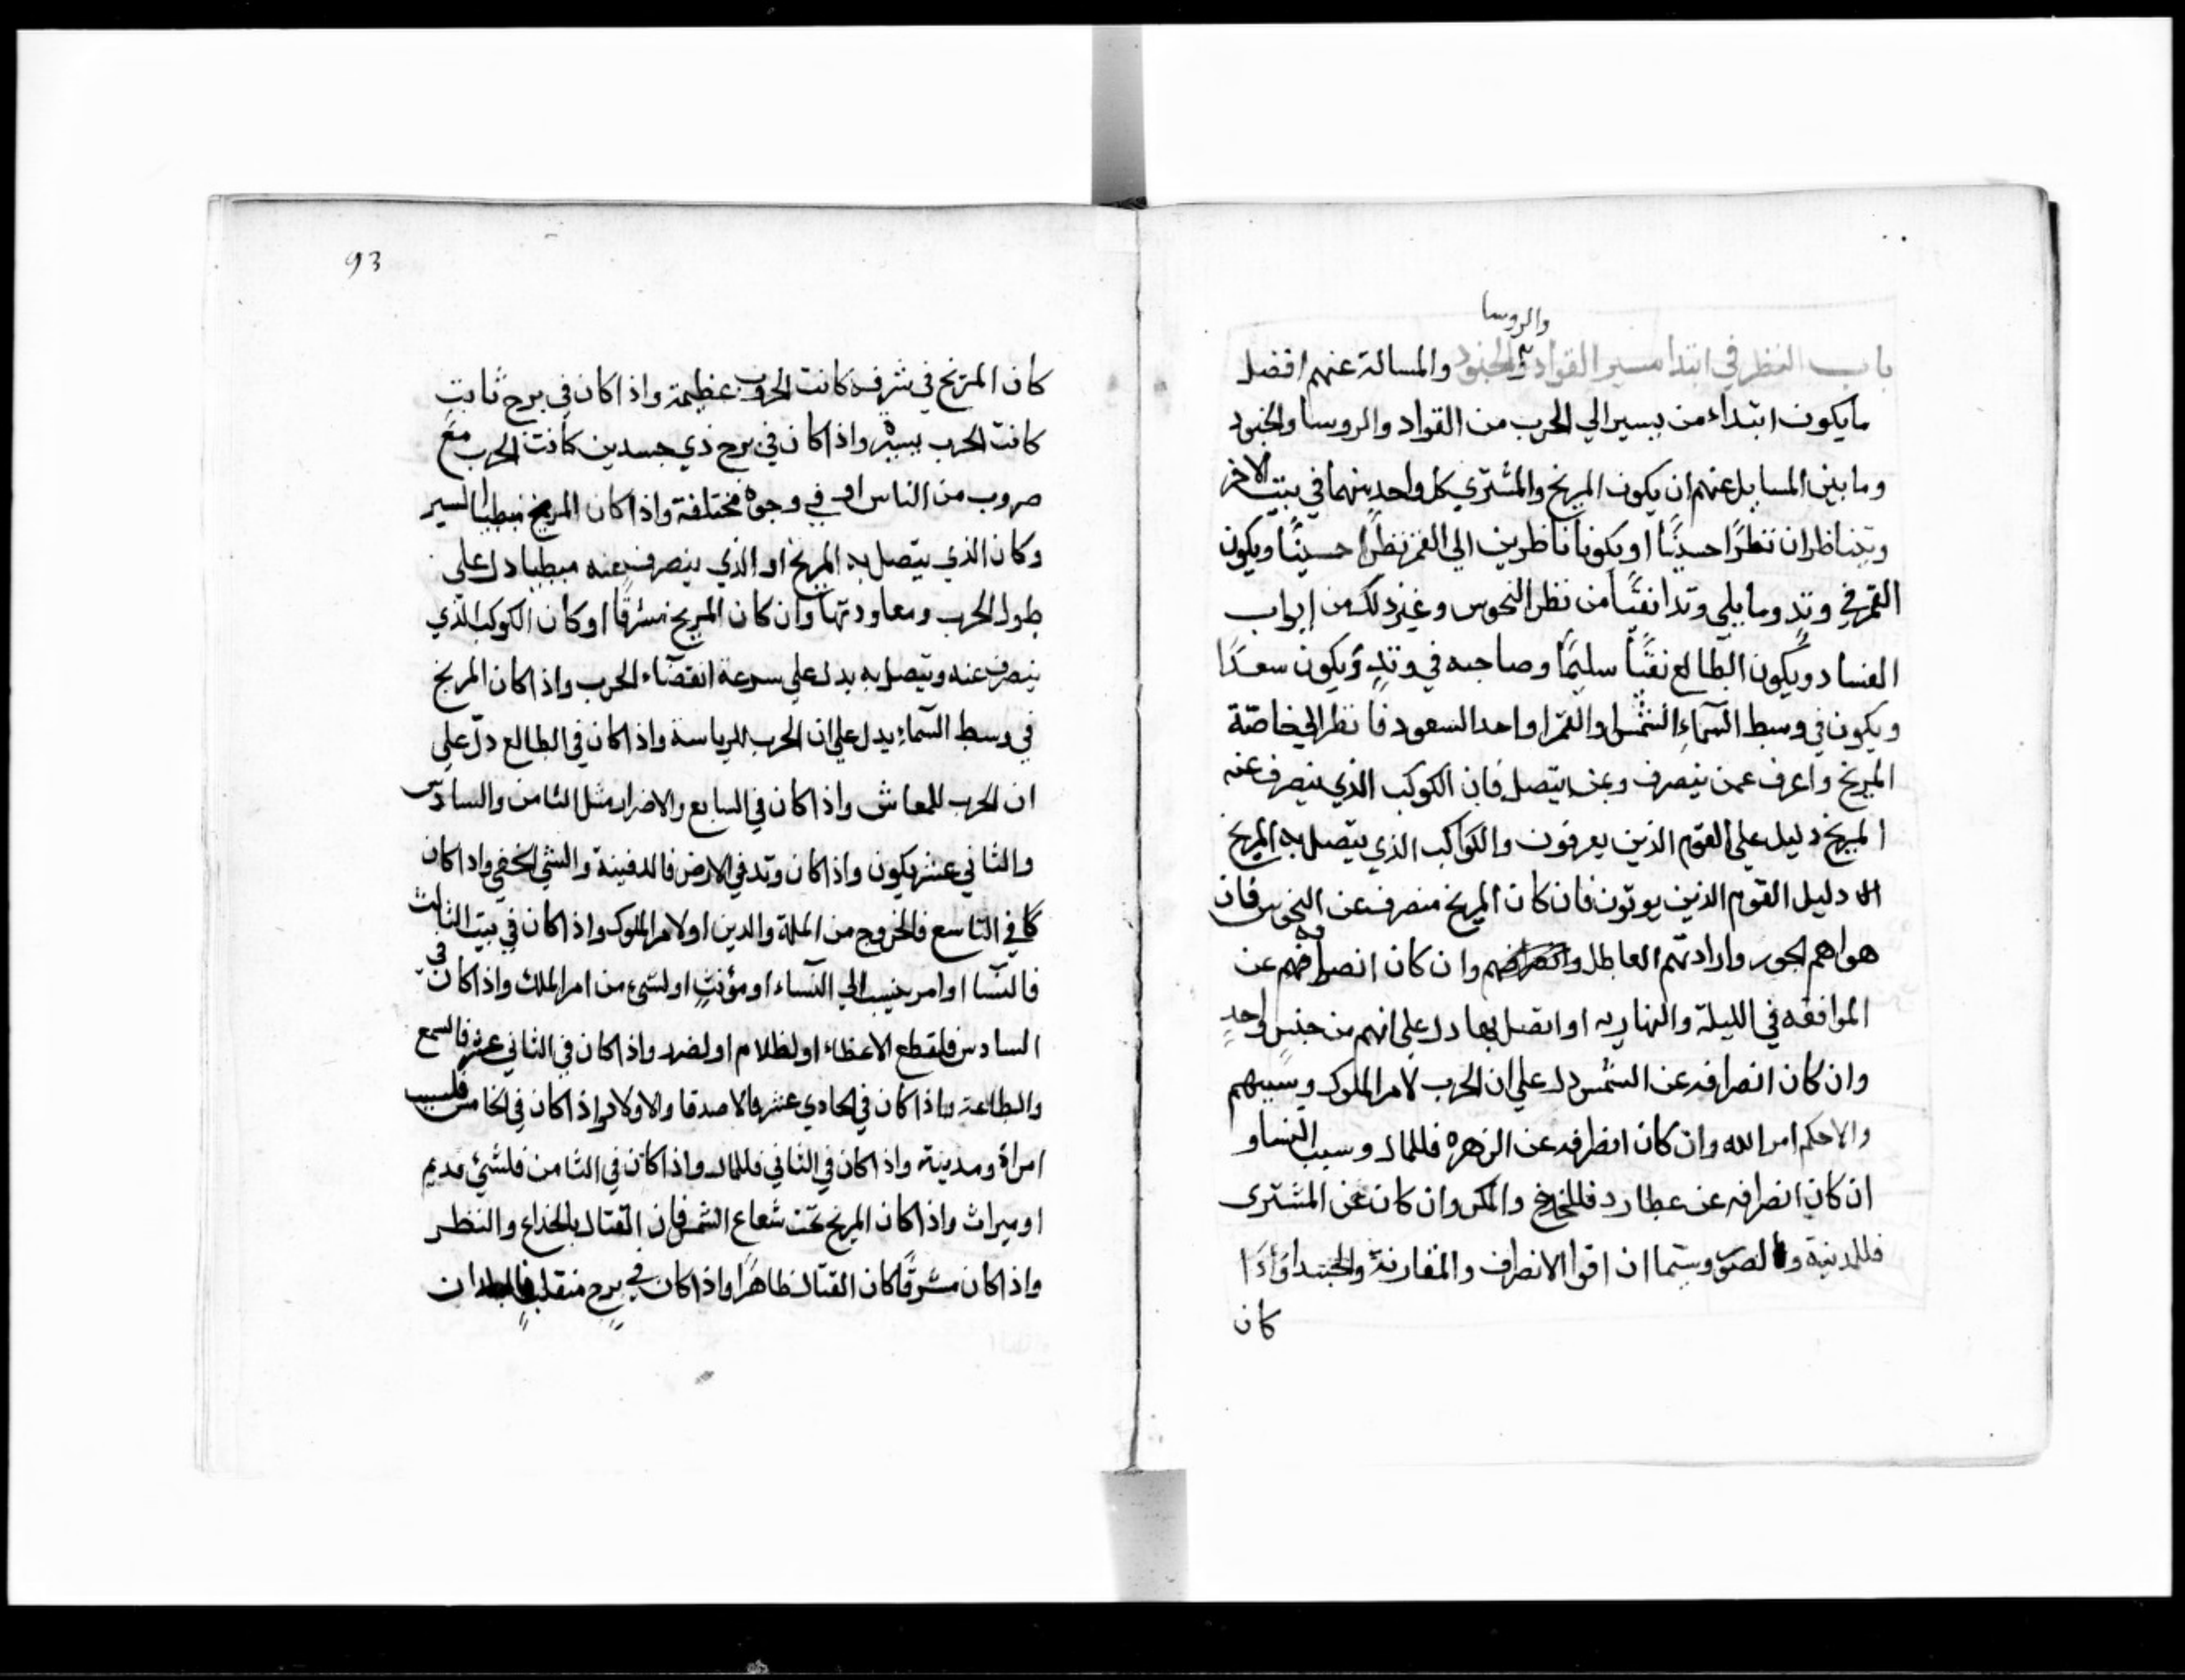 والروسا
باب النظر في ابتدا مسير القواد والجنود والمسالة عنهم افضل
مايكون ابتداء من يسير الي الحرب من القواد والروسا والجنود
وما بين المسايل عنهم ان يكون المريخ والمشتري كل واحد منهما في بيت الاخر
ويتناظران نظرًا حسنًا او يكونا ناظرين الي القمر نظرًا حسنًا ويكون
القمر في وتد وما يلي وتدا نقيًّا من نظر النحوس وغير ذلك من ابواب
الفساد ويكون الطالع نقيًّا سليمًا وصاحبه في وتدٍ ويكون سعدًا
ويكون في وسط السمآءِ الشمس او القمر او احد السعود فانظر الي خاصّة
المريخ واعرف عمن ينصرف وبمن يتصل فان الكوكب الذي ينصرف عنه
المريخ دليل علي القوم الذين يعرفون والكواكب الذي يتصل به المريخ
دليل القوم الذين يوتون فان كان المريخ منصرف عن النحوس فان
هواهم الجور وارادتهم العاطل وان كان انصرافهم عن
الموافقه في الليلة والنهاريه او اتصل بها دل علي انهم من جنس واحدٍ
وان كان انصرافه عن الشمس دل علي ان الحرب لامر الملوك وسببهم
والاحكم امر الله وان كان انظرافه عن الزهرة فللمال وسبب النسا و
ان كان انصرافه عن عطارد والمكر وان كان عن المشترى
فللمدنية و وسيما ان اقوا الانصراف والمقارنة
كان
93
كان المريخ في شرفه كانت الحروب عظيمة واذا كان في برج ثابتٍ
كانت الحرب يسيرة واذا كان في برج ذي جسدين كانت الحرب مع
ضروب من الناس او في وجوه مختلفة واذا كان المريخ مبطيا السير
وكان الذي يتصل به المريخ او الذي ينصرف عنه مبطيا دل علي
طول الحرب ومعاودتها وان كان المريخ مشرقًا او كان الكوكب الذي
ينصرف عنه ويتصل به يدل علي سرعة انقضآء الحرب واذا كان المريخ
في وسط السمآءِ يدل علي ان الحرب للرياسة واذا كان في الطالع دلّ علي
ان الحرب للمعاش واذا كان في السابع والاضرار مثل الثامن والسادس
والثاني عشر يكون واذا كان وتد في الارض فالدفينة والشي الخفي واذا كان
كا في التاسع فالخروج من الملة والدين او لامر الملوك واذا كان في بيت الثالث
فالنسآ او امر ينسب الي النسآء او مؤنثٍ او لشيء من امر الملك واذا كان في
السادس فلقطع الاعظاء او لظلام او لضرر واذا كان في الثاني عشر فالسمع
والطاعة واذا كان في الحادي عشر فالاصدقا والاولاد واذا كان في الخامس فلسبب
امراة ومدينة واذا كان في الثاني فللمال واذا كان في الثامن فلشئ قديم
او ميراث واذا كان المريخ تحت شعاع الشمس فان القتال بالخداع والنظر
واذا كان مشرقًا كان القتال ظاهرًا واذا كان في برج منقلب